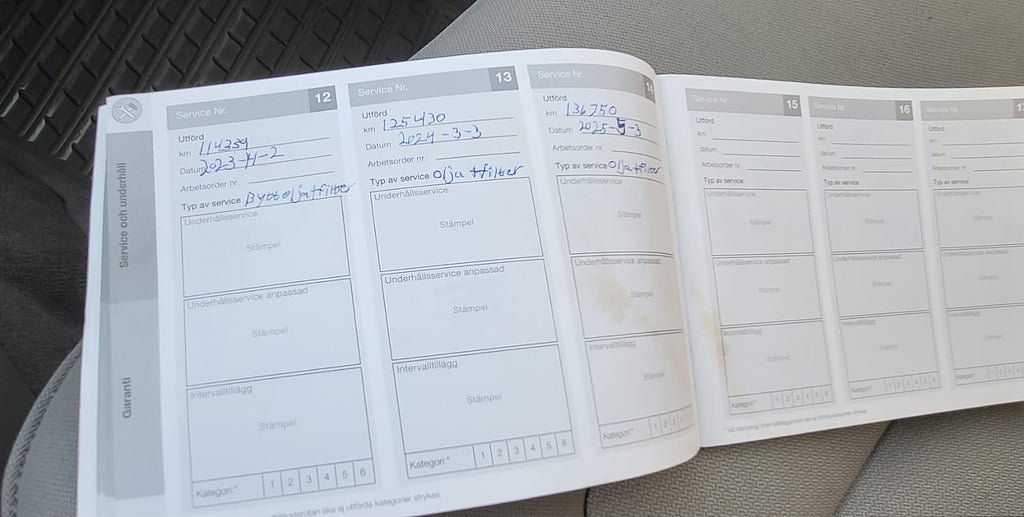 Service och underhåll
Garanti
Service Nr. 12
Utförd
km 114359
Datum 2023-4-2
Arbetsorder nr.
Typ av service Bytt olja+filter
Underhållsservice
Stämpel
Underhållsservice anpassad
Stämpel
Intervalltillägg
Stämpel
Kategori:* 1 2 3 4 5 6
Service Nr. 13
Utförd
km 125430
Datum 2024-3-3
Arbetsorder nr.
Typ av service Olja +filter
Underhållsservice
Stämpel
Underhållsservice anpassad
Stämpel
Intervalltillägg
Stämpel
Kategori:* 1 2 3 4 5 6
ska ej utförda kategorier strykas.
Service Nr. 14
Utförd
km 136750
Datum 2025-5-3
Arbetsorder nr.
Typ av service Olja+filter
Underhållsservice
Stämpel
Underhållsservice anpassad
Stämpel
Intervalltillägg
Stämpel
Kategori:* 1 2 3
Service Nr. 15
Utförd
km
datum
Arbetsorder nr.
Typ av service
Underhållsservice
Stämpel
Underhållsservice anpassad
Stämpel
Intervalltillägg
Stämpel
Kategori:* 1 2 3 4 5 6
Service Nr. 16
Utförd
km
datum
Arbetsorder nr.
Typ av service
Underhållsservice
Stämpel
Underhållsservice anpassad
Stämpel
Intervalltillägg
Stämpel
Kategori:* 1 2 3 4 5 6
Service Nr.
Utförd
km
datum
Arbetsorder nr.
Typ av service
Underhållsservice
Stämpel
Underhållsservice anpassad
Stämpel
Intervalltillägg
Stämpel
Kategori:*